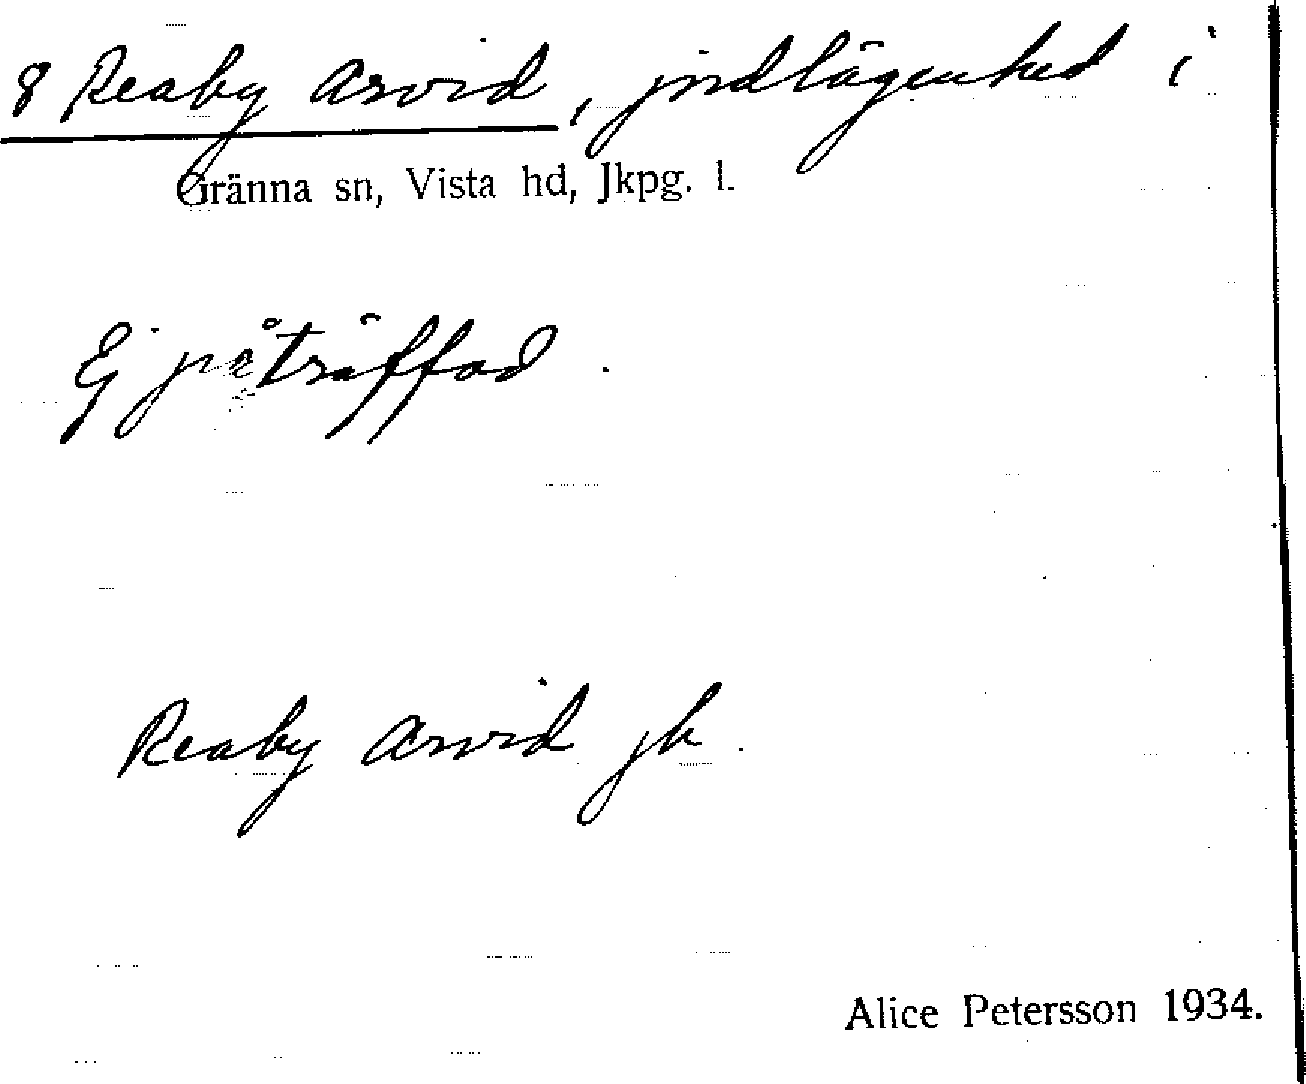 8 Reaby Arvid, jordlägenhet i
Gränna sn, Vista hd, Jkpg. l.
Ej påträffad.
Reaby Arvid jb.
Alice Petersson 1934.